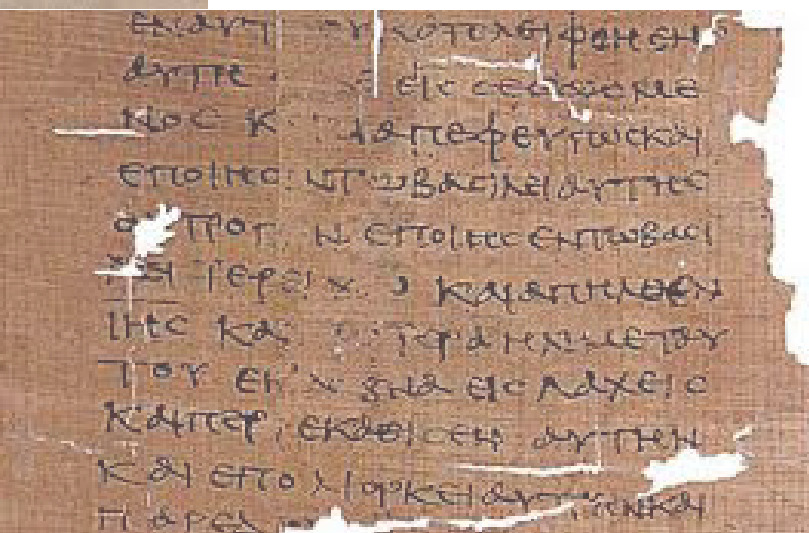 ΕΝ ΑΥΤ ΟΥ ΚΑΤΕΛΕΙΦΘΗ ΕΝ
ΑΥΤΗ ΕΙΣ ΣΕΣΩΣΜΕ
ΝΟΣ Κ ΔΙΑΠΕΦΕΥΓΩΣ ΚΑΙ
ΕΠΟΙΗΣ ΝΤΩ ΒΑΣΙΛΕΙ ΑΥΤΗΣ
Ο ΤΡΟΠ Ν ΕΠΟΙΗΣΕΝ ΤΩ ΒΑΣΙ
ΛΕΙ ΙΕΡΕΙΧ ΚΑΙ ΑΠΗΛΘΕΝ
ΙΗΣ ΚΑΙ ΙΣΡΑΗΛ ΜΕΤ ΑΥ
ΤΟΥ ΕΚ Λ ΒΝΑ ΕΙΣ ΛΑΧΕΙΣ
ΚΑΙ ΠΕΡΙΕΚΑΘΙΣΕΝ ΑΥΤΗΝ
ΚΑΙ ΕΠΟΛΙΟΡΚΕΙ ΑΥΤΗΝ ΚΑΙ
ΠΑΡΕΔ